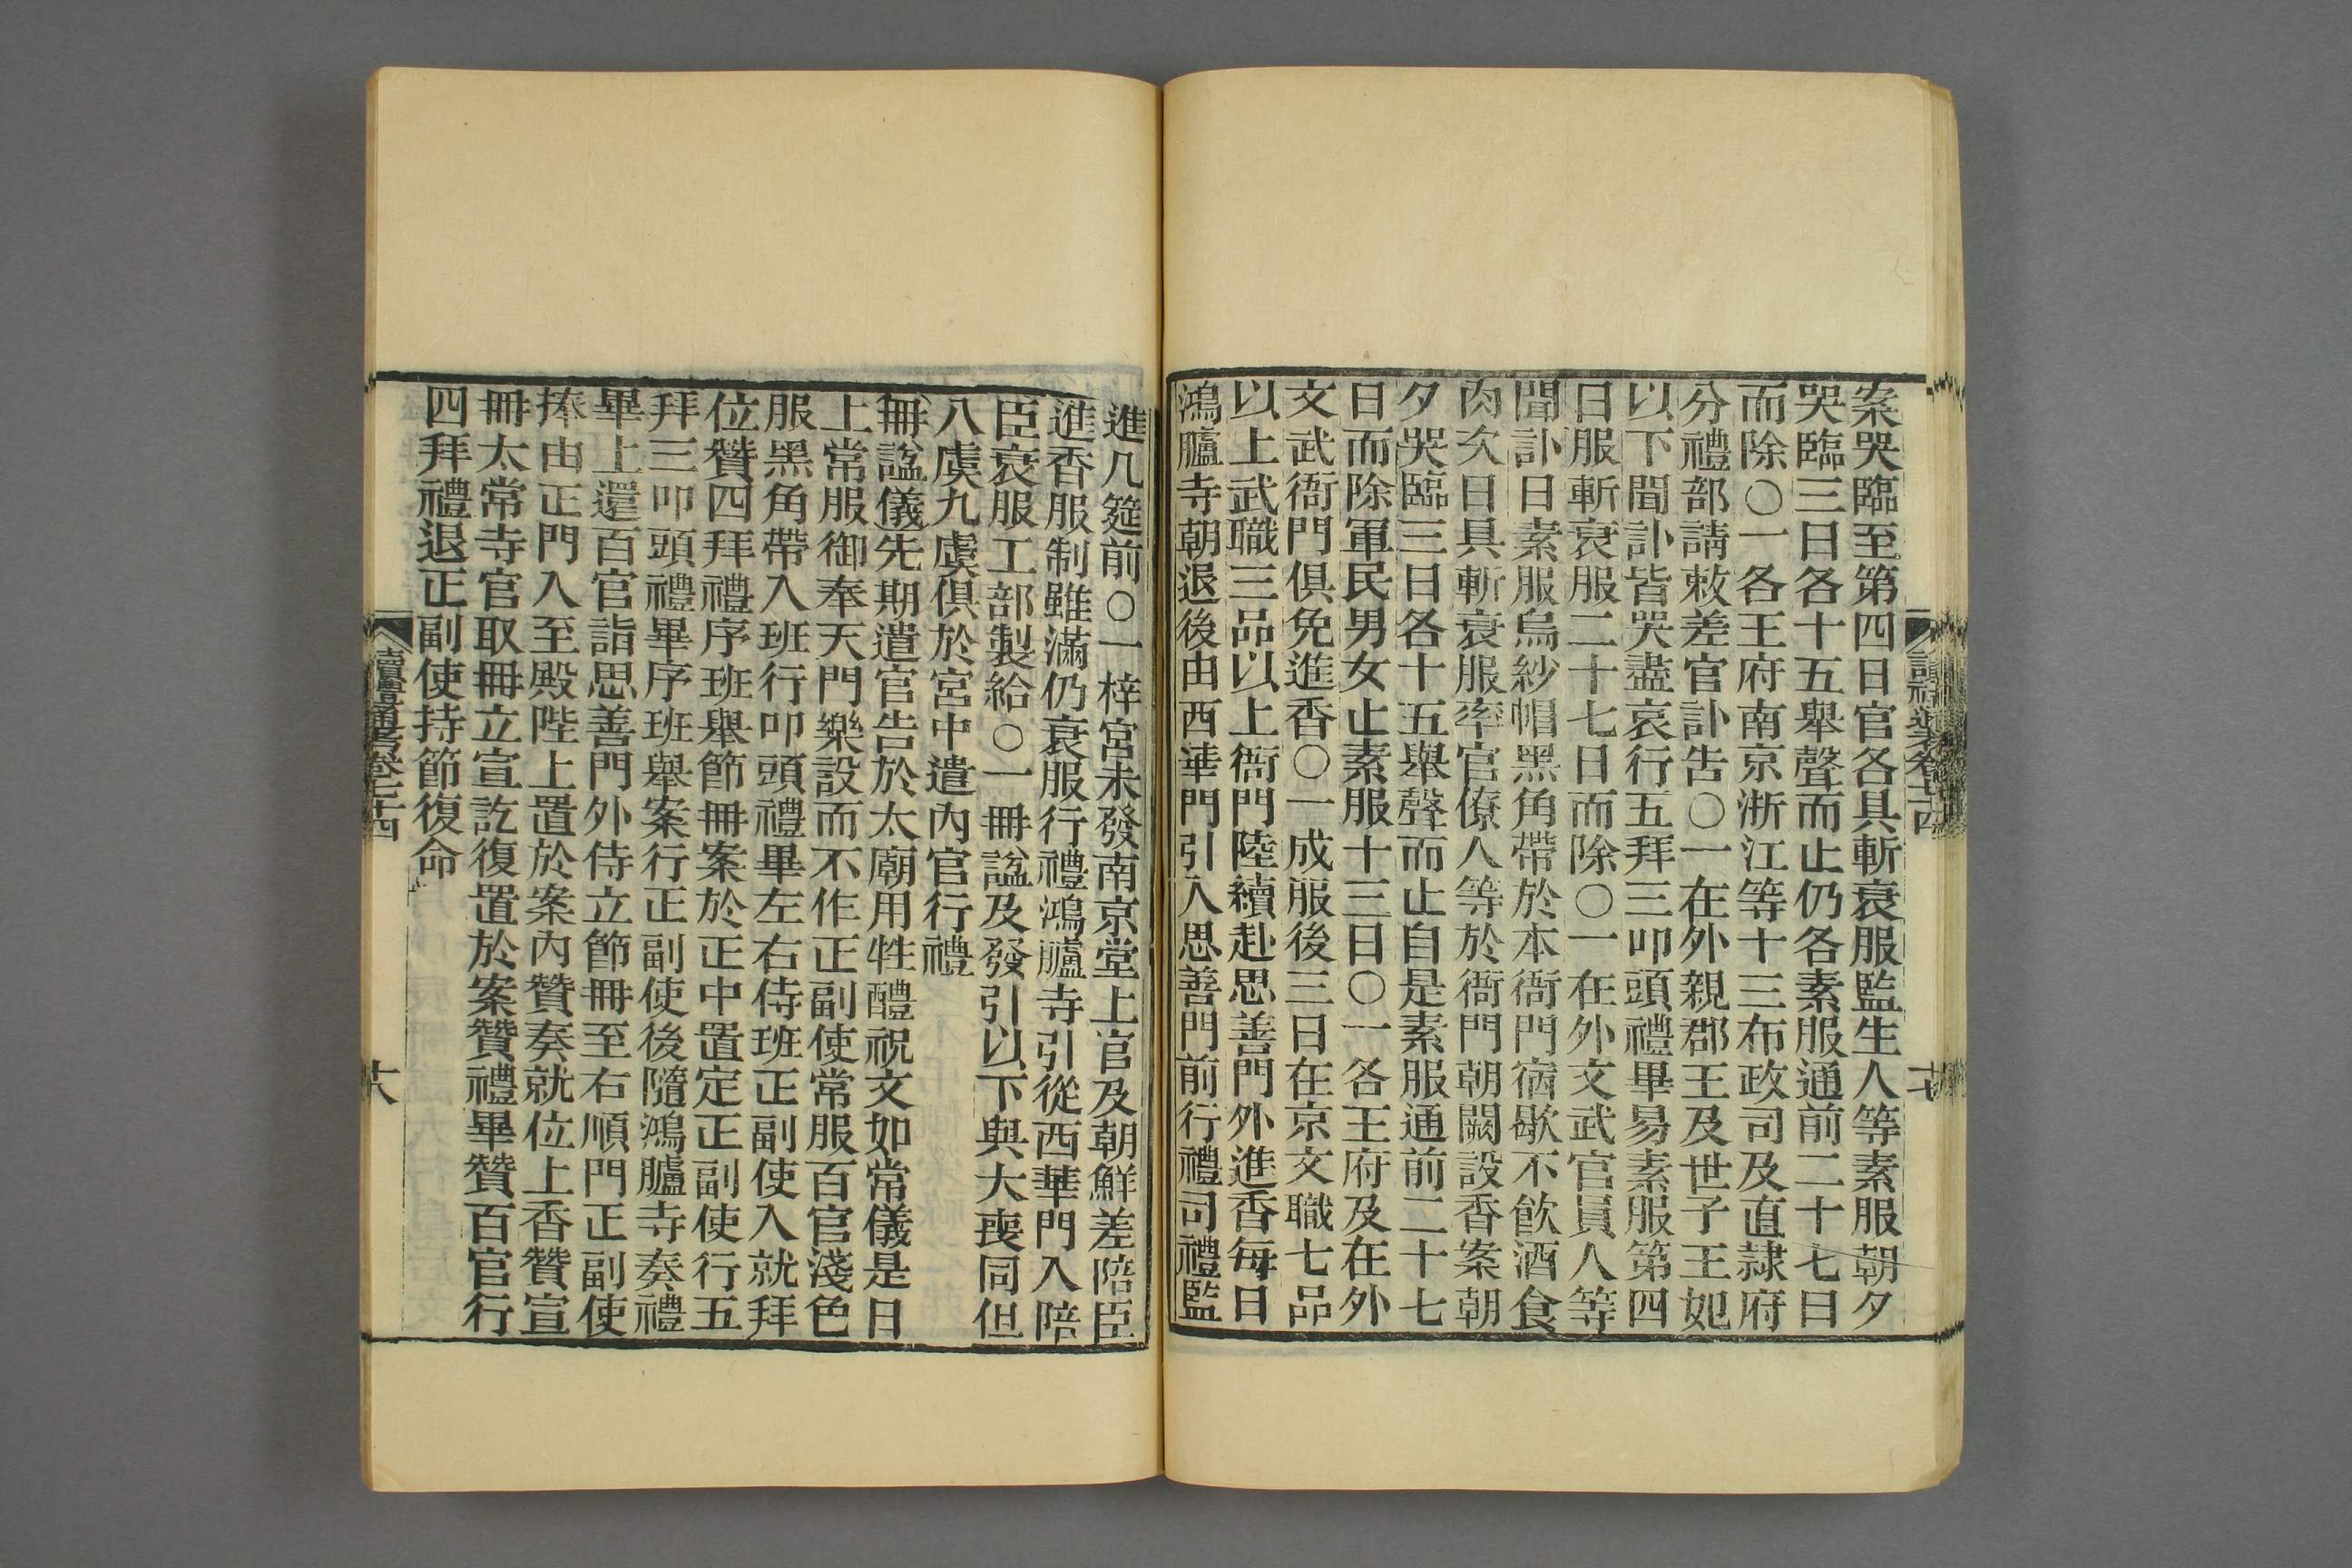 案哭臨至第四日官各具斬衰服監生人等素服朝夕
哭臨三日各十五舉聲而止仍各素服通前二十七日
而除○一各王府南京浙江等十三布政司及直隷府
分禮部請敕差官訃告○一在外親郡王及世子王妃
以下聞訃皆哭盡哀行五拜三叩頭禮畢易素服第四
日服斬衰服二十七日而除○一在外文武官員人等
聞訃日素服烏紗帽黑角帶於本衙門宿歇不飲酒食
肉次日具斬衰服率官僚人等於衙門朝闕設香案朝
夕哭臨三日各十五舉聲而止自是素服通前二十七
日而除軍民男女止素服十三日○一各王府及在外
文武衙門俱免進香○一成服後三日在京文職七品
以上武職三品以上衙門陸續赴思善門外進香每日
鴻臚寺朝退後由西華門引入思善門前行禮司禮監
進几筵前○一梓宮未發南京堂上官及朝鮮差陪臣
進香服制雖滿仍衰服行禮鴻臚寺引從西華門入陪
臣衰服工部製給○一冊謚及發引以下與大喪同但
八虞九虞俱於宮中遣內官行禮
冊謚儀先期遣官告於太廟用牲醴祝文如常儀是日
上常服御奉天門樂設而不作正副使常服百官淺色
服黑角帶入班行叩頭禮畢左右侍班正副使入就拜
位贊四拜禮序班舉節冊案於正中置定正副使行五
拜三叩頭禮畢序班舉案行正副使後隨鴻臚寺奏禮
畢上還百官詣思善門外侍立節冊至右順門正副使
捧由正門入至殿陛上置於案內贊奏就位上香贊宣
冊太常寺官取冊立宣訖復置於案贊禮畢贊百官行
四拜禮退正副使持節復命
讀禮通考卷七十四
十八